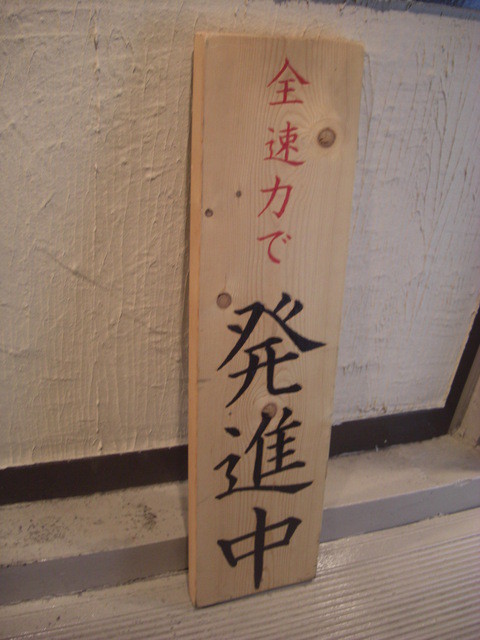 全速力で
発進中